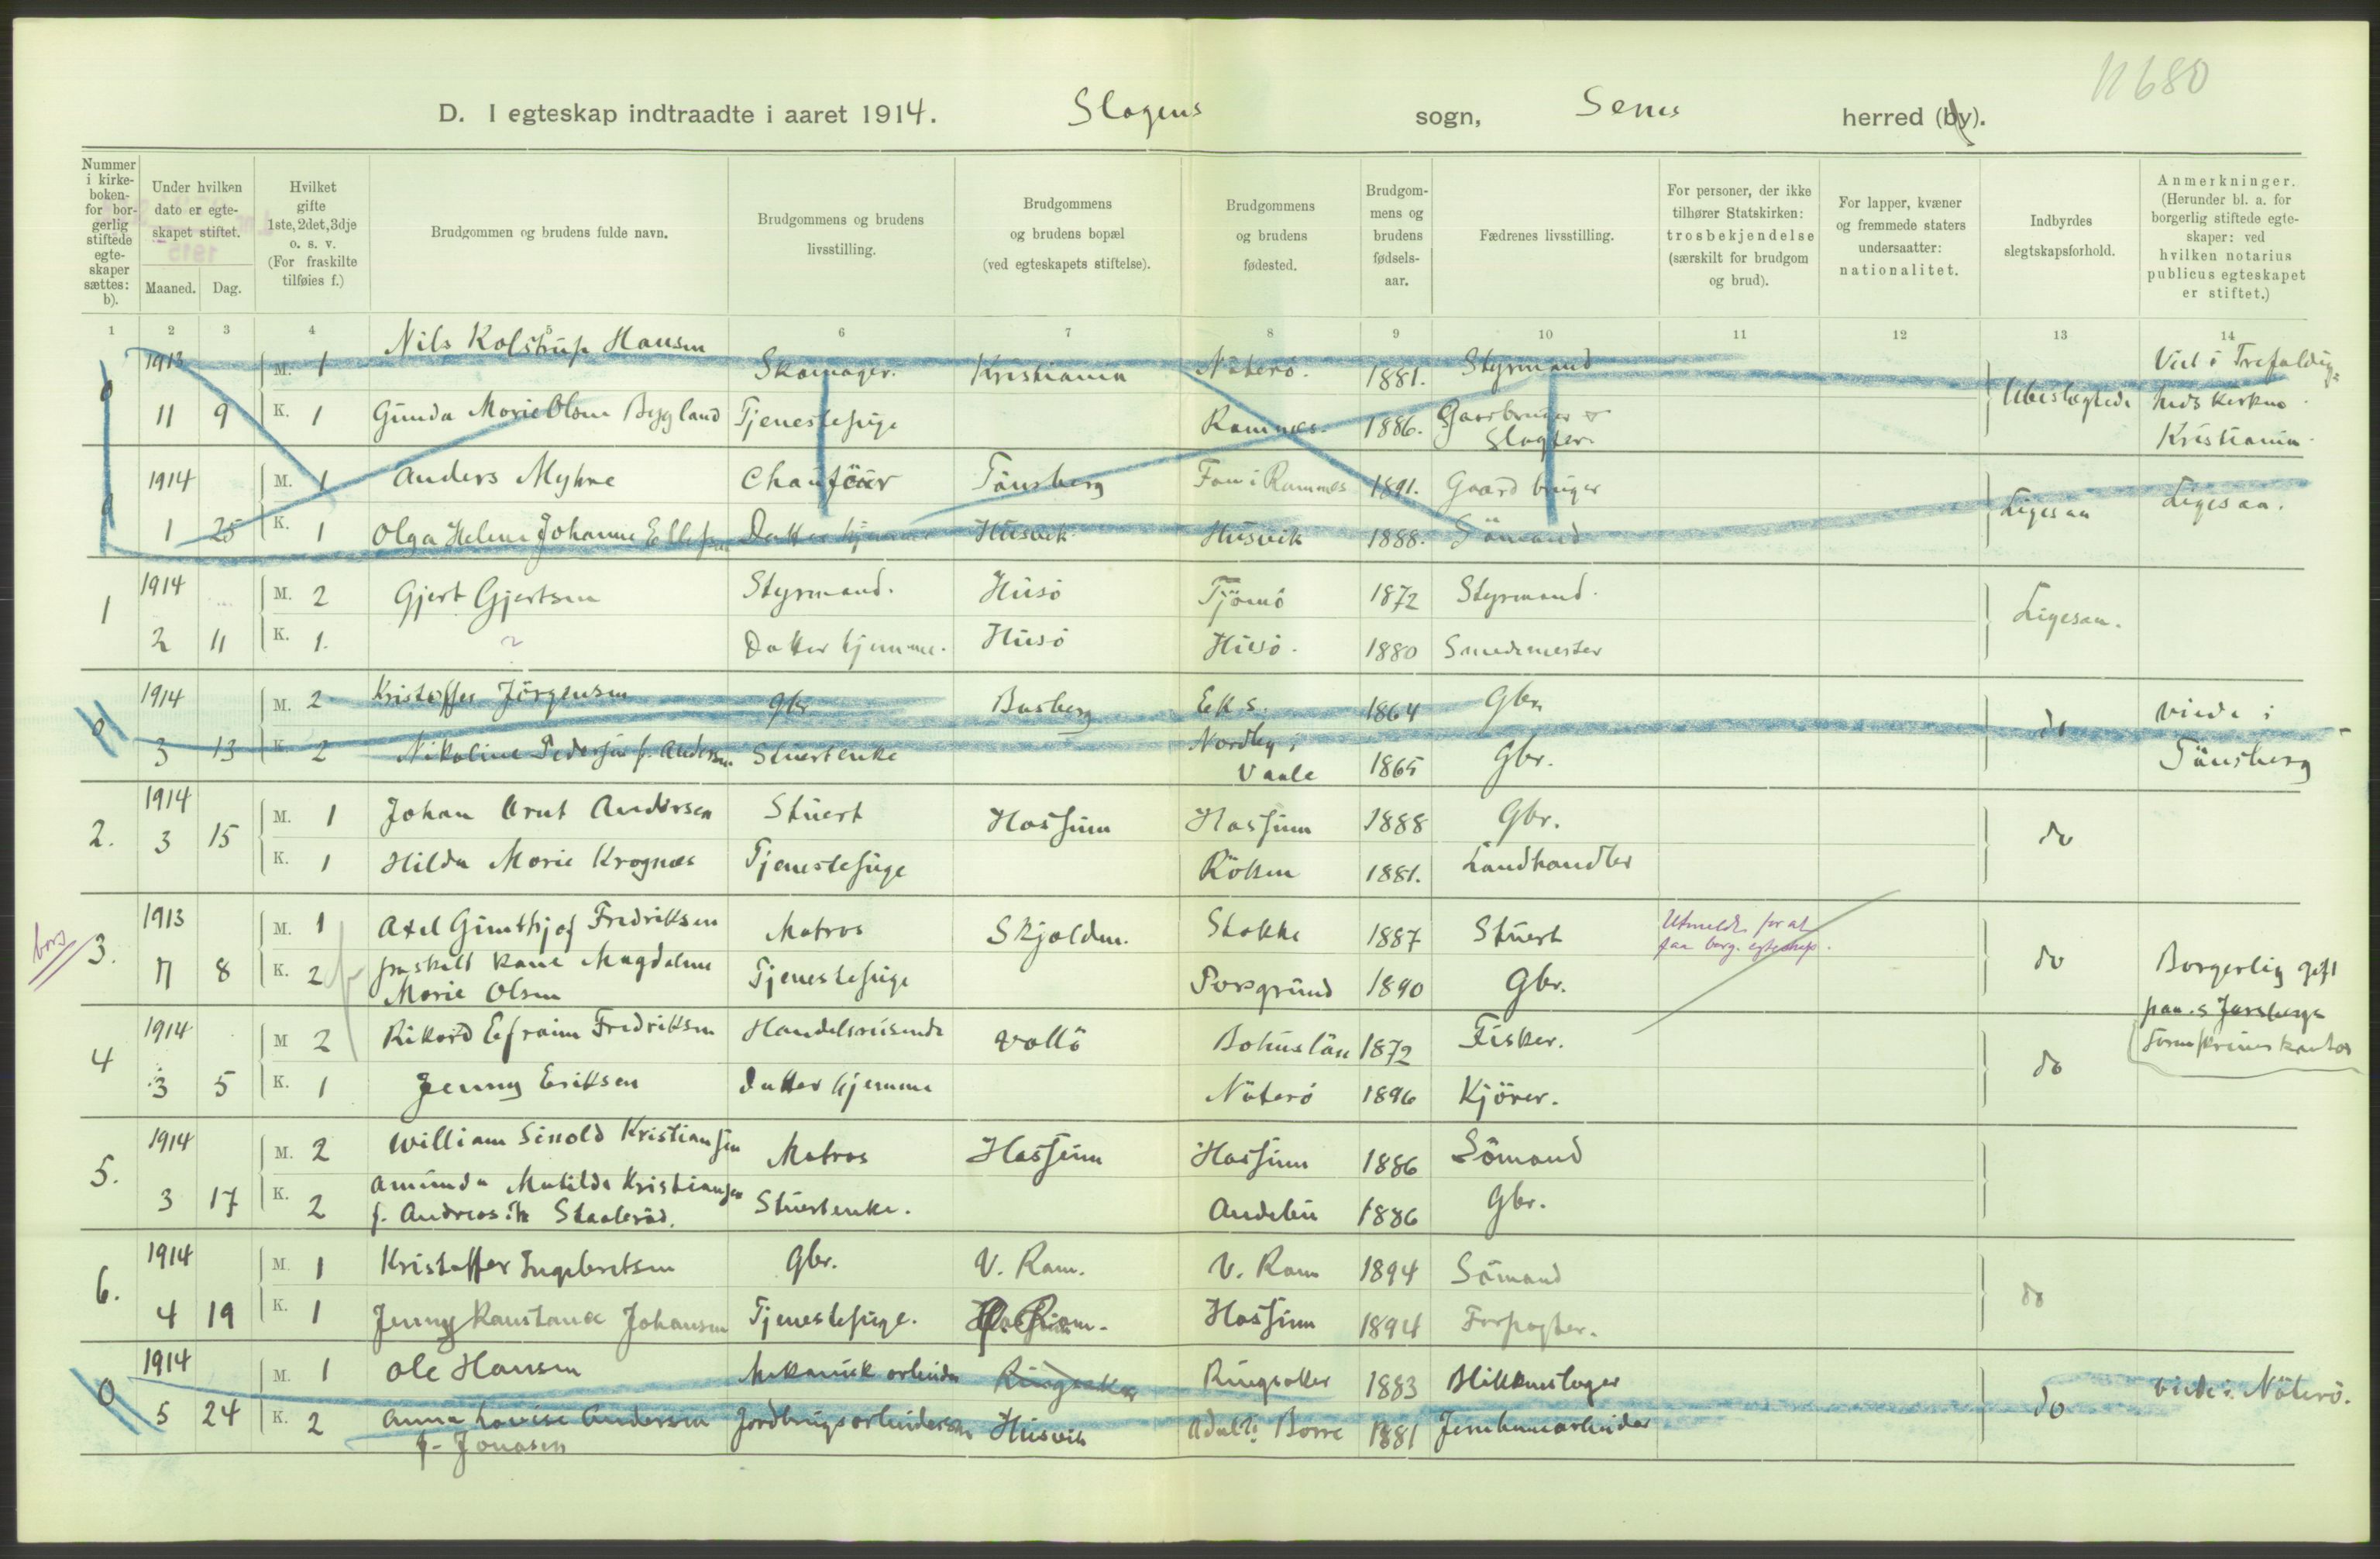 11680
D. I egteskap indtraadte i aaret 1914. Slagens sogn, Sems herred (by).
Nummer i kirkeboken for borgerlig stiftede egteskaper sættes: b).
Under hvilken dato er egteskapet stiftet.
Maaned. Dag.
Hvilket gifte 1ste, 2det, 3dje o. s. v. (For fraskilte tilføies f.)
Brudgommen og brudens fulde navn.
Brudgommens og brudens livsstilling.
Brudgommens og brudens bopæl (ved egteskapets stiftelse).
Brudgommens og brudens fødested.
Brudgommens og brudens fødselsaar.
Fædrenes livsstilling.
For personer, der ikke tilhører Statskirken: trosbekjendelse (særskilt for brudgom og brud).
For lapper, kvæner og fremmede staters undersaatter: nationalitet.
Indbyrdes slegtskapsforhold.
Anmerkninger. (Herunder bl. a. for borgerlig stiftede egteskaper: ved hvilken notarius publicus egteskapet er stiftet.)
1 2 3 4 5 6 7 8 9 10 11 12 13 14
0 1913 M. 1 Nils Kolstrup Hansen Skomager. Kristiania Nøterø. 1881. Styrmand Ubeslegtede Viet i Trefoldig=
11 9 K. 1 Gunda Marie Olsen Bygland Tjenestepige Ramnes. 1886. Gaardbruger & Slagter. heds kirken Kristiania.
0 1914 M. 1 Anders Myhre Chauføör Tönsberg Fon i Ramnes 1891. Gaardbruger Ligesaa Ligesaa.
1 25 K. 1 Olga Helene Johanne Ellefsen Datter hjemme Husvik Husvik 1888. Sömand
1 1914 M. 2 Gjert Gjertsen Styrmand. Husö Tjömö 1872 Styrmand. Ligesaa.
2 11 K. 1. Datter hjemme. Husö Husö. 1880 Smedemester
0 1914 M. 2 Kristoffer Jörgensen gbr Basberg Eks. 1864 Gbr. do viede i
3 13 K. 2 Nikoline Pedersen f. Andersen Stuertenke Nordby i Vaale 1865 Gbr. Tönsberg
2. 1914 M. 1 Johan Arnt Andersen Stuert Hassum Hassum 1888 Gbr. do
3 15 K. 1 Hilda Marie Krognæs Tjenestepige Röken 1881. Landhandler
bors 3. 1913 M. 1 Axel Gunthjof Fredriksen Matros Skjolden. Stokke 1887 Stuert Utmeldt for at faa borg. egteskap. do
11 8 K. 2 fraskilt kone Magdalene Marie Olsen Tjenestepige Porsgrund 1890 Gbr. Borgerlig gift
paa s Jarsbergs
Sorenskriverkontor
4 1914 M 2 Rikard Efraim Fredriksen Handelsreisende Vallö Bohuslän 1872 Fisker. do
3 5 K. 1 Jenny Eriksen Datter hjemme Nöterö 1896 Kjörer.
5. 1914 M. 2 William Sinold Kristiansen Matros Hassum Hassum 1886 Sömand
3 17 K. 2 Amunda Matilde Kristiansen f. Andreas :k Staalerød. Stuertenke. Andebu 1886 Gbr.
6. 1914 M. 1 Kristoffer Ingebretsen Gbr. V. Ram. V. Ram 1894 Sömand do
4 19 K. 1 Jenny Konstance Johansen Tjenestepige. Hassum 1894 Forpagter.
0 1914 M. 1 Ole Hansen Mekanisk arbeider Ringsaker Ringsaker 1883 Blikkenslager do viede i Nöterö.
5 24 K. 2 Anna Lovise Andersen f. Jonasen Jordbrugsarbeiderske Husvik Borre 1881 Jernbanearbeider